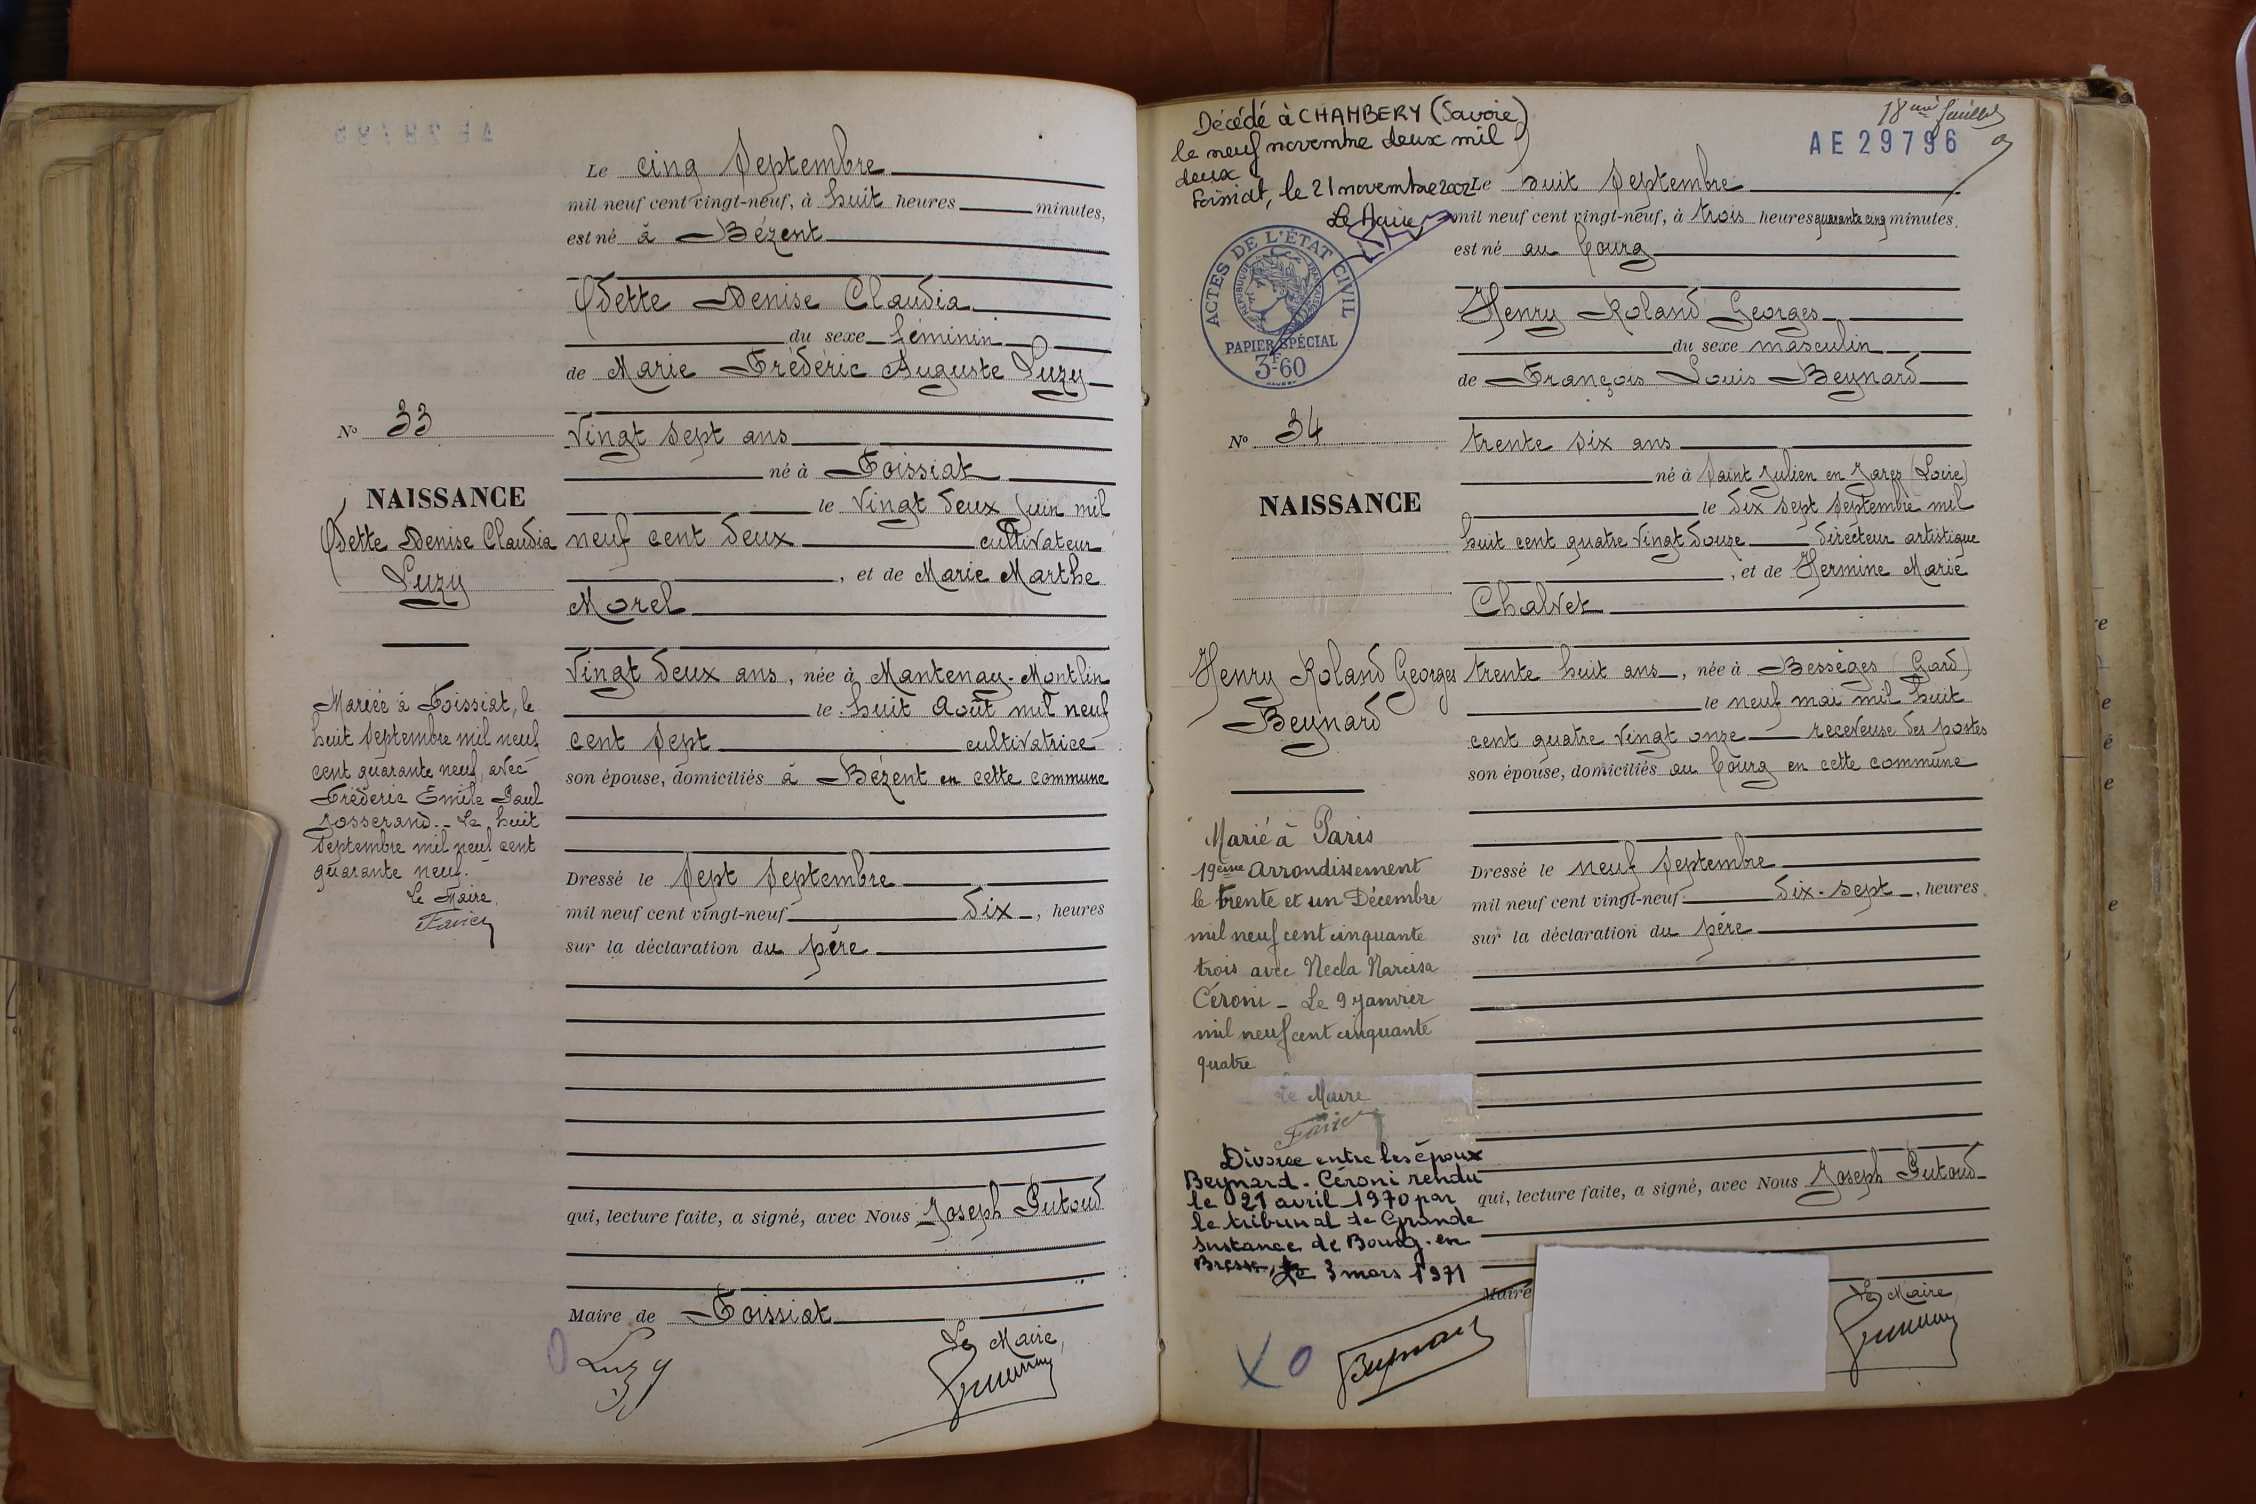 Le cinq Septembre
mil neuf cent vingt-neuf, à huit heures minutes,
est né à Bézent
Odette Denise Claudia
du sexe féminin
de Marie Frédéric Auguste Luzy
Vingt sept ans
né à Foissiat
le vingt deux Juin mil
neuf cent deux cultivateur
, et de Marie Marthe
Morel
Vingt deux ans, née à Mantenay-Montlin
le huit Août mil neuf
cent sept cultivatrice
son épouse, domiciliés à Bézent en cette commune
Dressé le sept Septembre
mil neuf cent vingt-neuf dix, heures
sur la déclaration du père
qui, lecture faite, a signé, avec Nous Joseph Putoud
Maire de Foissiat
Le Maire,
Luzy
No 33
NAISSANCE
Odette Denise Claudia
Luzy
Mariée à Foissiat, le
huit Septembre mil neuf
cent quarante neuf, avec
Fréderic Emile Paul
Josserand.- Le huit
Septembre mil neuf cent
quarante neuf.
Le Maire,
Favier
Décédé à CHAMBERY (Savoie)
le neuf novembre deux mil
deux
Foissiat, le 21 novembre 2002
Le Maire
18ème feuillet
AE 29796
ACTES DE L'ÉTAT CIVIL
RÉPUBLIQUE FRANÇAISE
PAPIER SPÉCIAL
3F60
Le huit Septembre
mil neuf cent vingt-neuf, à trois heures quarante cinq minutes,
est né au bourg
Henry Roland Georges
du sexe masculin
de François Louis Beynard
trente six ans
né à Saint Julien en Jarez (Loire)
le dix sept Septembre mil
huit cent quatre vingt douze directeur artistique
, et de Hermine Marie
Chalvet
trente huit ans, née à Bessèges (Gard)
le neuf mai mil huit
cent quatre vingt onze receveuse des postes
son épouse, domiciliés au bourg en cette commune
Dressé le neuf Septembre
mil neuf cent vingt-neuf dix-sept, heures
sur la déclaration du père
qui, lecture faite, a signé, avec Nous Joseph Putoud
Maire
Le Maire,
Beynard
No 34
NAISSANCE
Henry Roland Georges
Beynard
Marié à Paris
19ème Arrondissement
le trente et un Décembre
mil neuf cent cinquante
trois avec Necla Narcisa
Céroni - Le 9 janvier
mil neuf cent cinquante
quatre
Le Maire
Favier
Divorce entre les époux
Beynard - Céroni rendu
le 21 avril 1970 par
le tribunal de Grande
Instance de Bourg-en
Bresse, le 3 mars 1971
X O